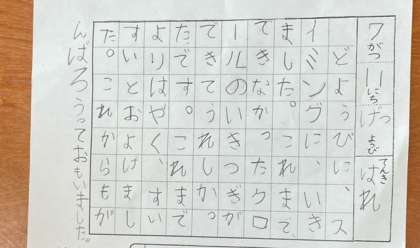 どようびに、ス
イミングに、いき
ました。これまで、
できなかったクロ
ールのいきつぎが
できてうれしかっ
たです。これまで
よりはやく、すい
すいとおよげまし
た。これからもが
んばろうっておもいました。